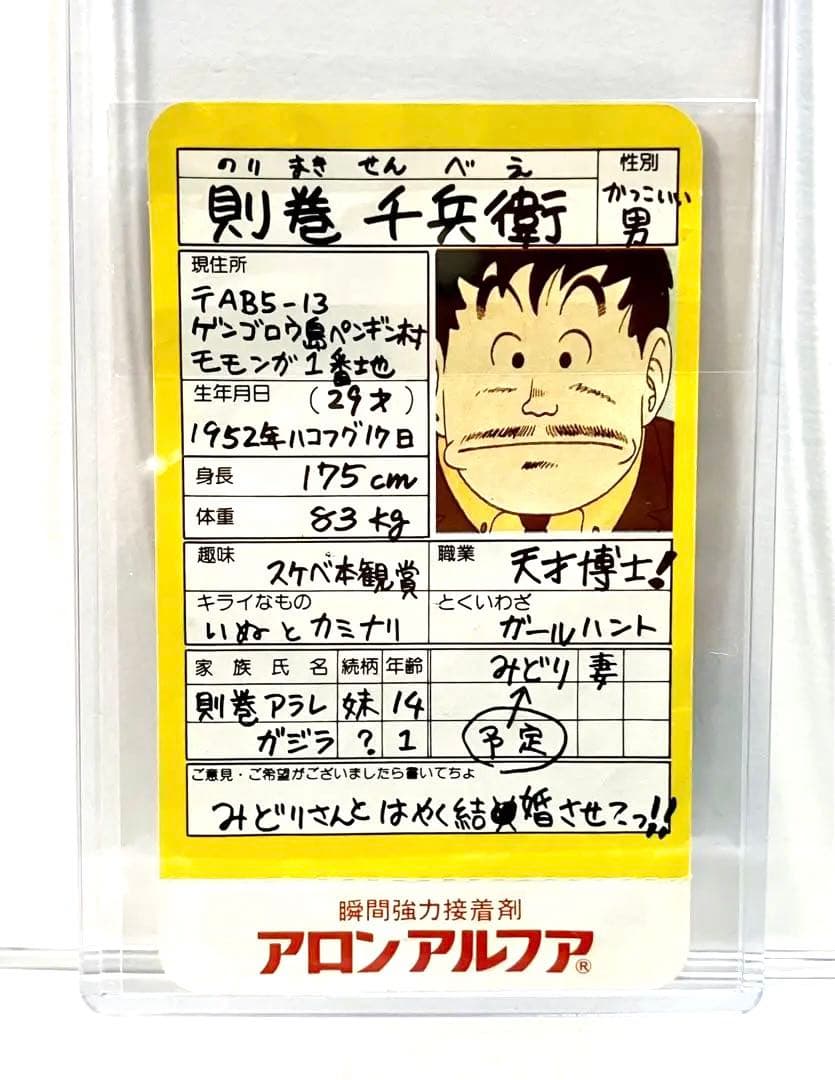 のりまきせんべえ
則巻千兵衛
性別
かっこいい
男
現住所
〒AB5-13
ゲンゴロウ島ペンギン村
モモンガ1番地
生年月日 (29才)
1952年ハコフグ17日
身長 175cm
体重 83kg
趣味 スケベ本観賞
職業 天才博士!
キライなもの
いぬとカミナリ
とくいわざ
ガールハント
家族氏名 続柄 年齢
則巻アラレ 妹 14
ガジラ ? 1
みどり 妻
予定
ご意見・ご希望がございましたら書いてちょ
みどりさんとはやく結婚させてっ!!
瞬間強力接着剤
アロンアルフア®